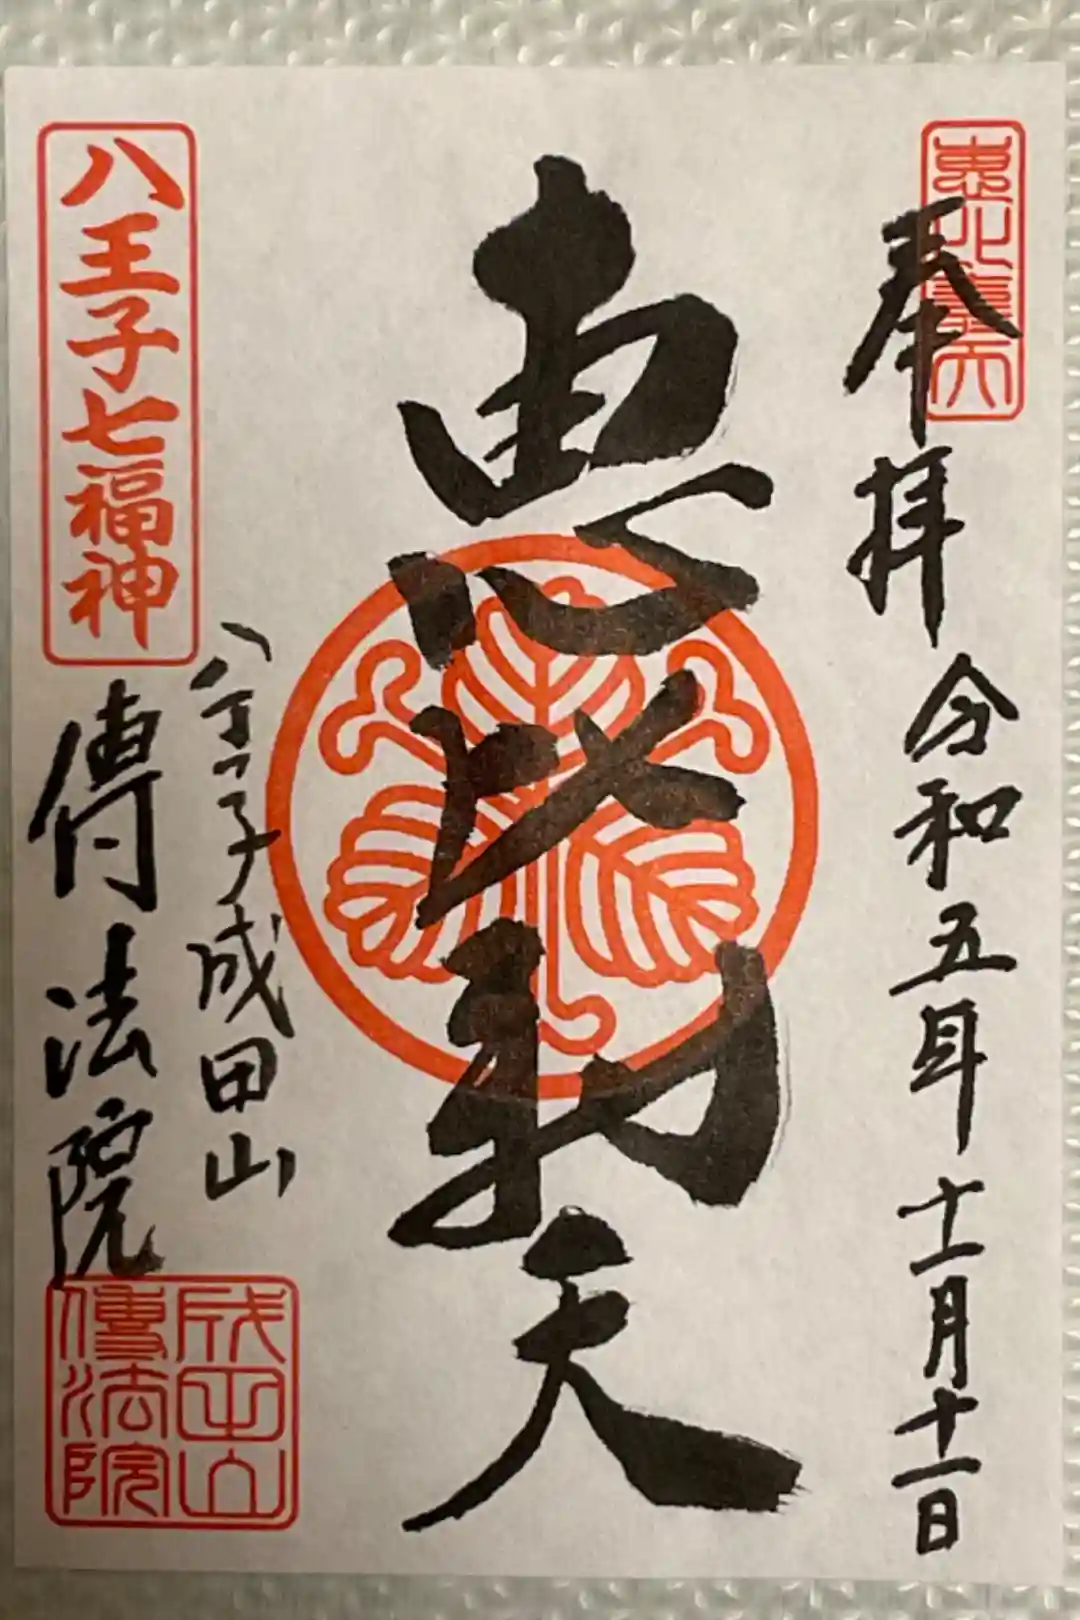 奉拝
令和五年十一月十一日
恵比寿天
八王子七福神
八王子成田山
傳法院
成田山
傳法院